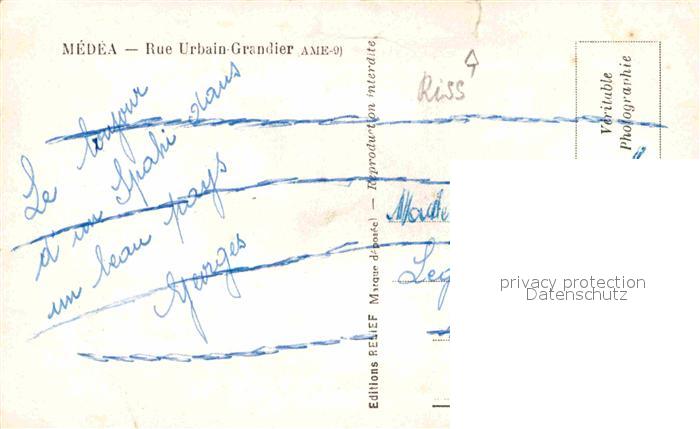 MÉDÉA — Rue Urbain-Grandier (AME-9)
Riss
Véritable
Photographie
Le toujour
d'un Spahi dans
un beau pays
Georges
Editions RELIEF (Marque déposée) — Reproduction interdite.
privacy protection
Datenschutz